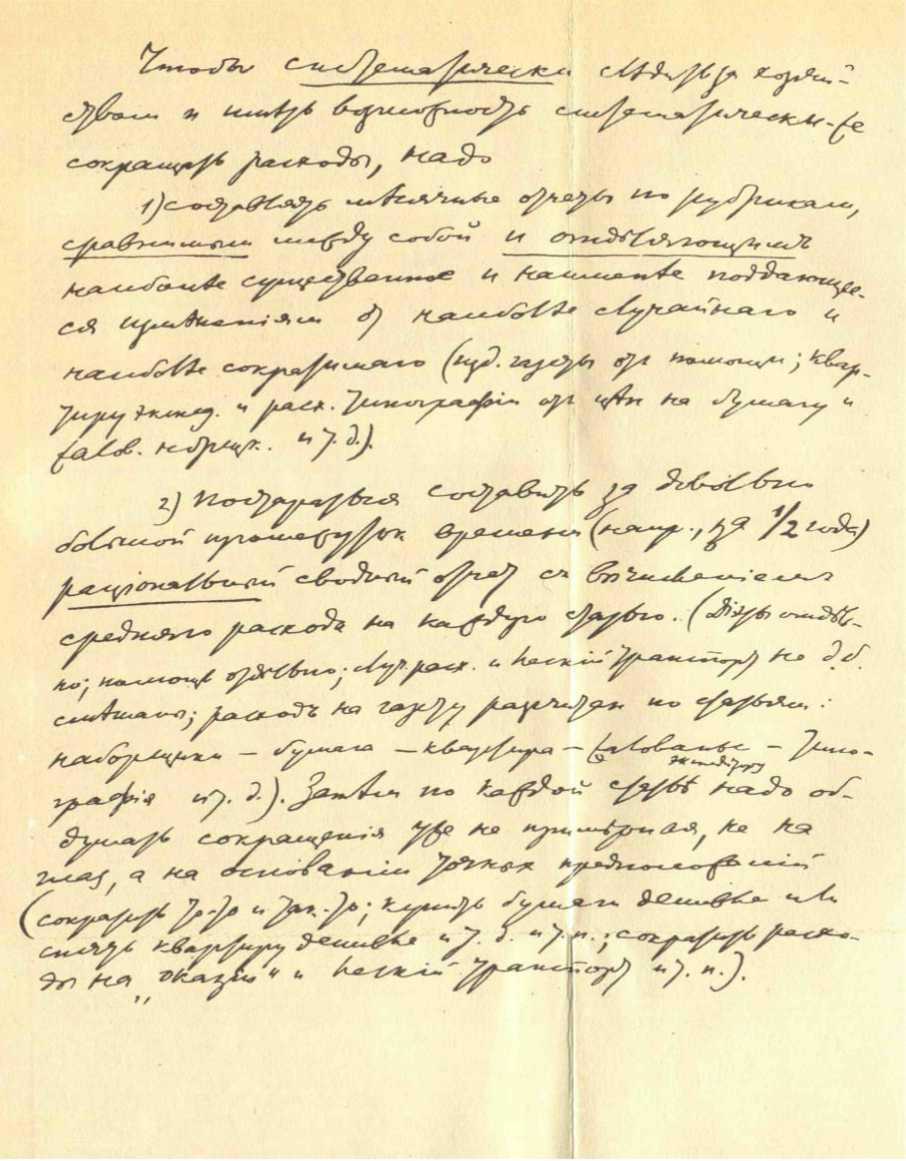 Чтобы систематически слѣдить за хозяй-
ством и имѣть возможность систематически-же
сокращать расходы, надо
1) составлять мѣсячные отчеты по рубрикам,
сравнимым между собой и отдѣляющимъ
наиболѣе существенное и наименѣе поддающее-
ся измѣненіям от наиболѣе случайнаго и
наиболѣе сократимаго (изд. газеты от помощи; квар-
тиру экспед. и расх. типографіи от цѣн на бумагу и
жалов. наборщик. и т. д.).
2) Постараться составить за довольно
большой промежуток времени (напр., за 1/2 года)
раціональный сводный отчет съ вычисленіем
средняго расхода на каждую статью. (Діэты отдѣль-
но; помощь отдѣльно; случ. расх. и транспорт не д. б.
смѣшаны; расходъ на газету разсчитан по статьям:
наборщики – бумага – квартира – жалованье – типо-
экспедитору
графія и т. д.). Затѣм по каждой статьѣ надо об-
думать сокращенія уже не примѣрныя, не на
глаз, а на основаніи точных предположеній
(сократить то-то и так-то; купить бумаги дешевле или
снять квартиру дешевле и т. д. и т. п.; сократить расхо-
ды на „оказіи“ и транспорт и т. п.).